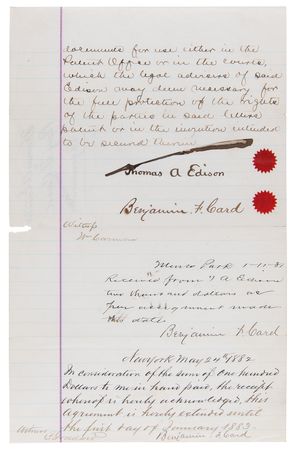 documents for use either in the
Patent Office or in the courts,
which the legal advisers of said
Edison may deem necessary for
the full protection of the rights
of the parties in said Letters
patent or in the invention intended
to be secured therein
Thomas A Edison
Benjamin F. Card
Witness
Wm Carman
Menlo Park 1-11-81
Received from T A Edison
one thousand dollars as
per assignment made
this date
Benjamin F Card
New York May 24th 1882
In consideration of the sum of One hundred
Dollars to me in hand paid, the receipt
whereof is hereby acknowledged, this
Agreement is hereby extended until
the first day of January 1883.
Witness
Benjamin F Card